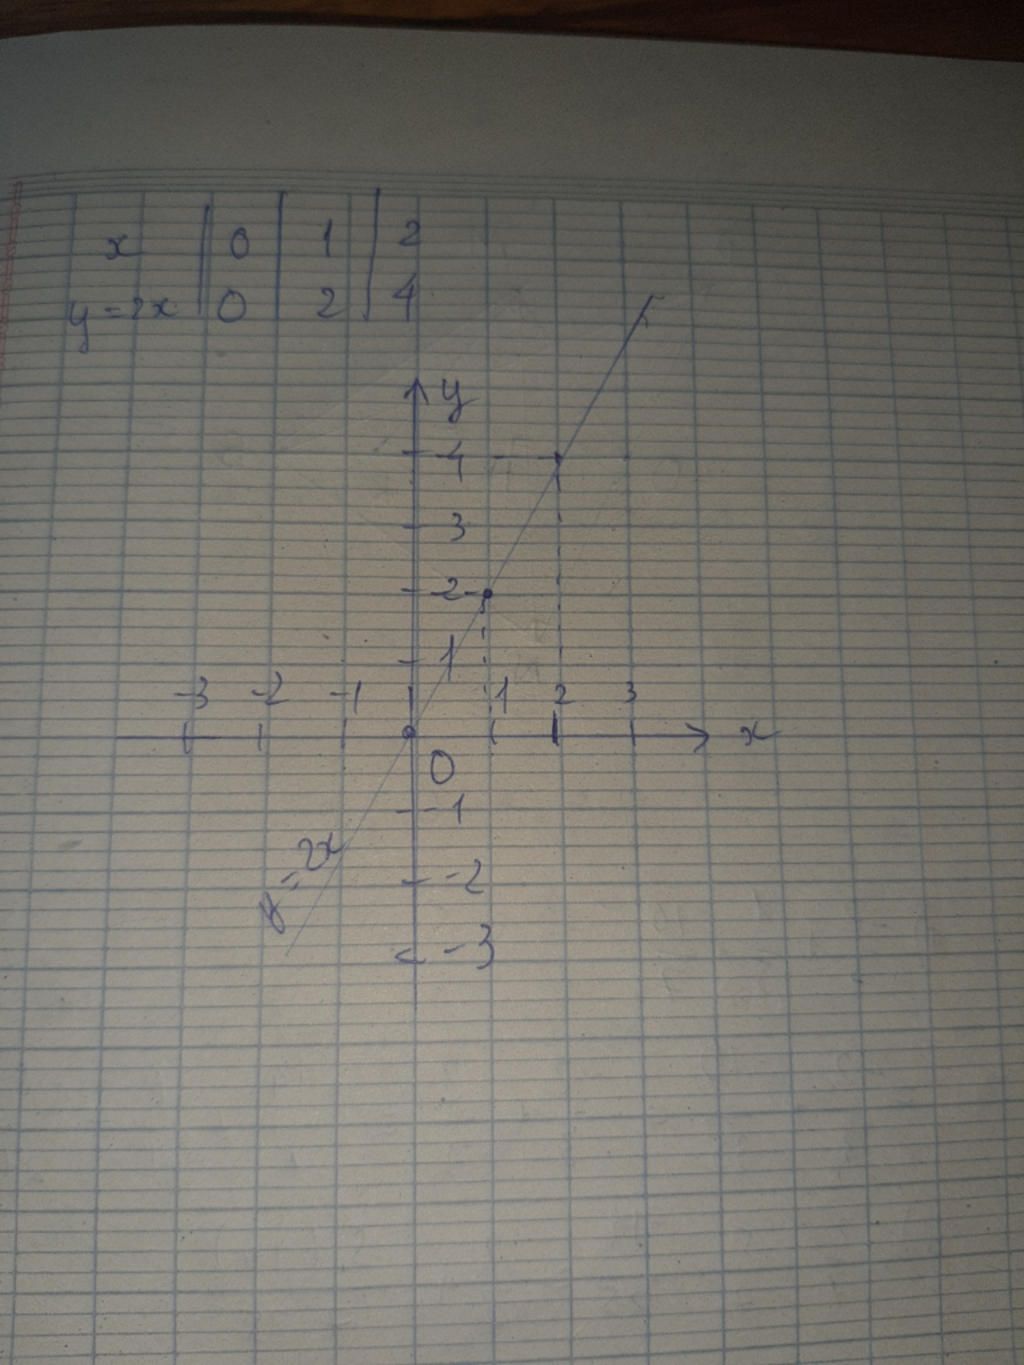 x 0 1 2
y = 2x 0 2 4
y
4
3
2
1
-3 -2 -1 1 2 3
x
0
-1
y = 2x
-2
-3